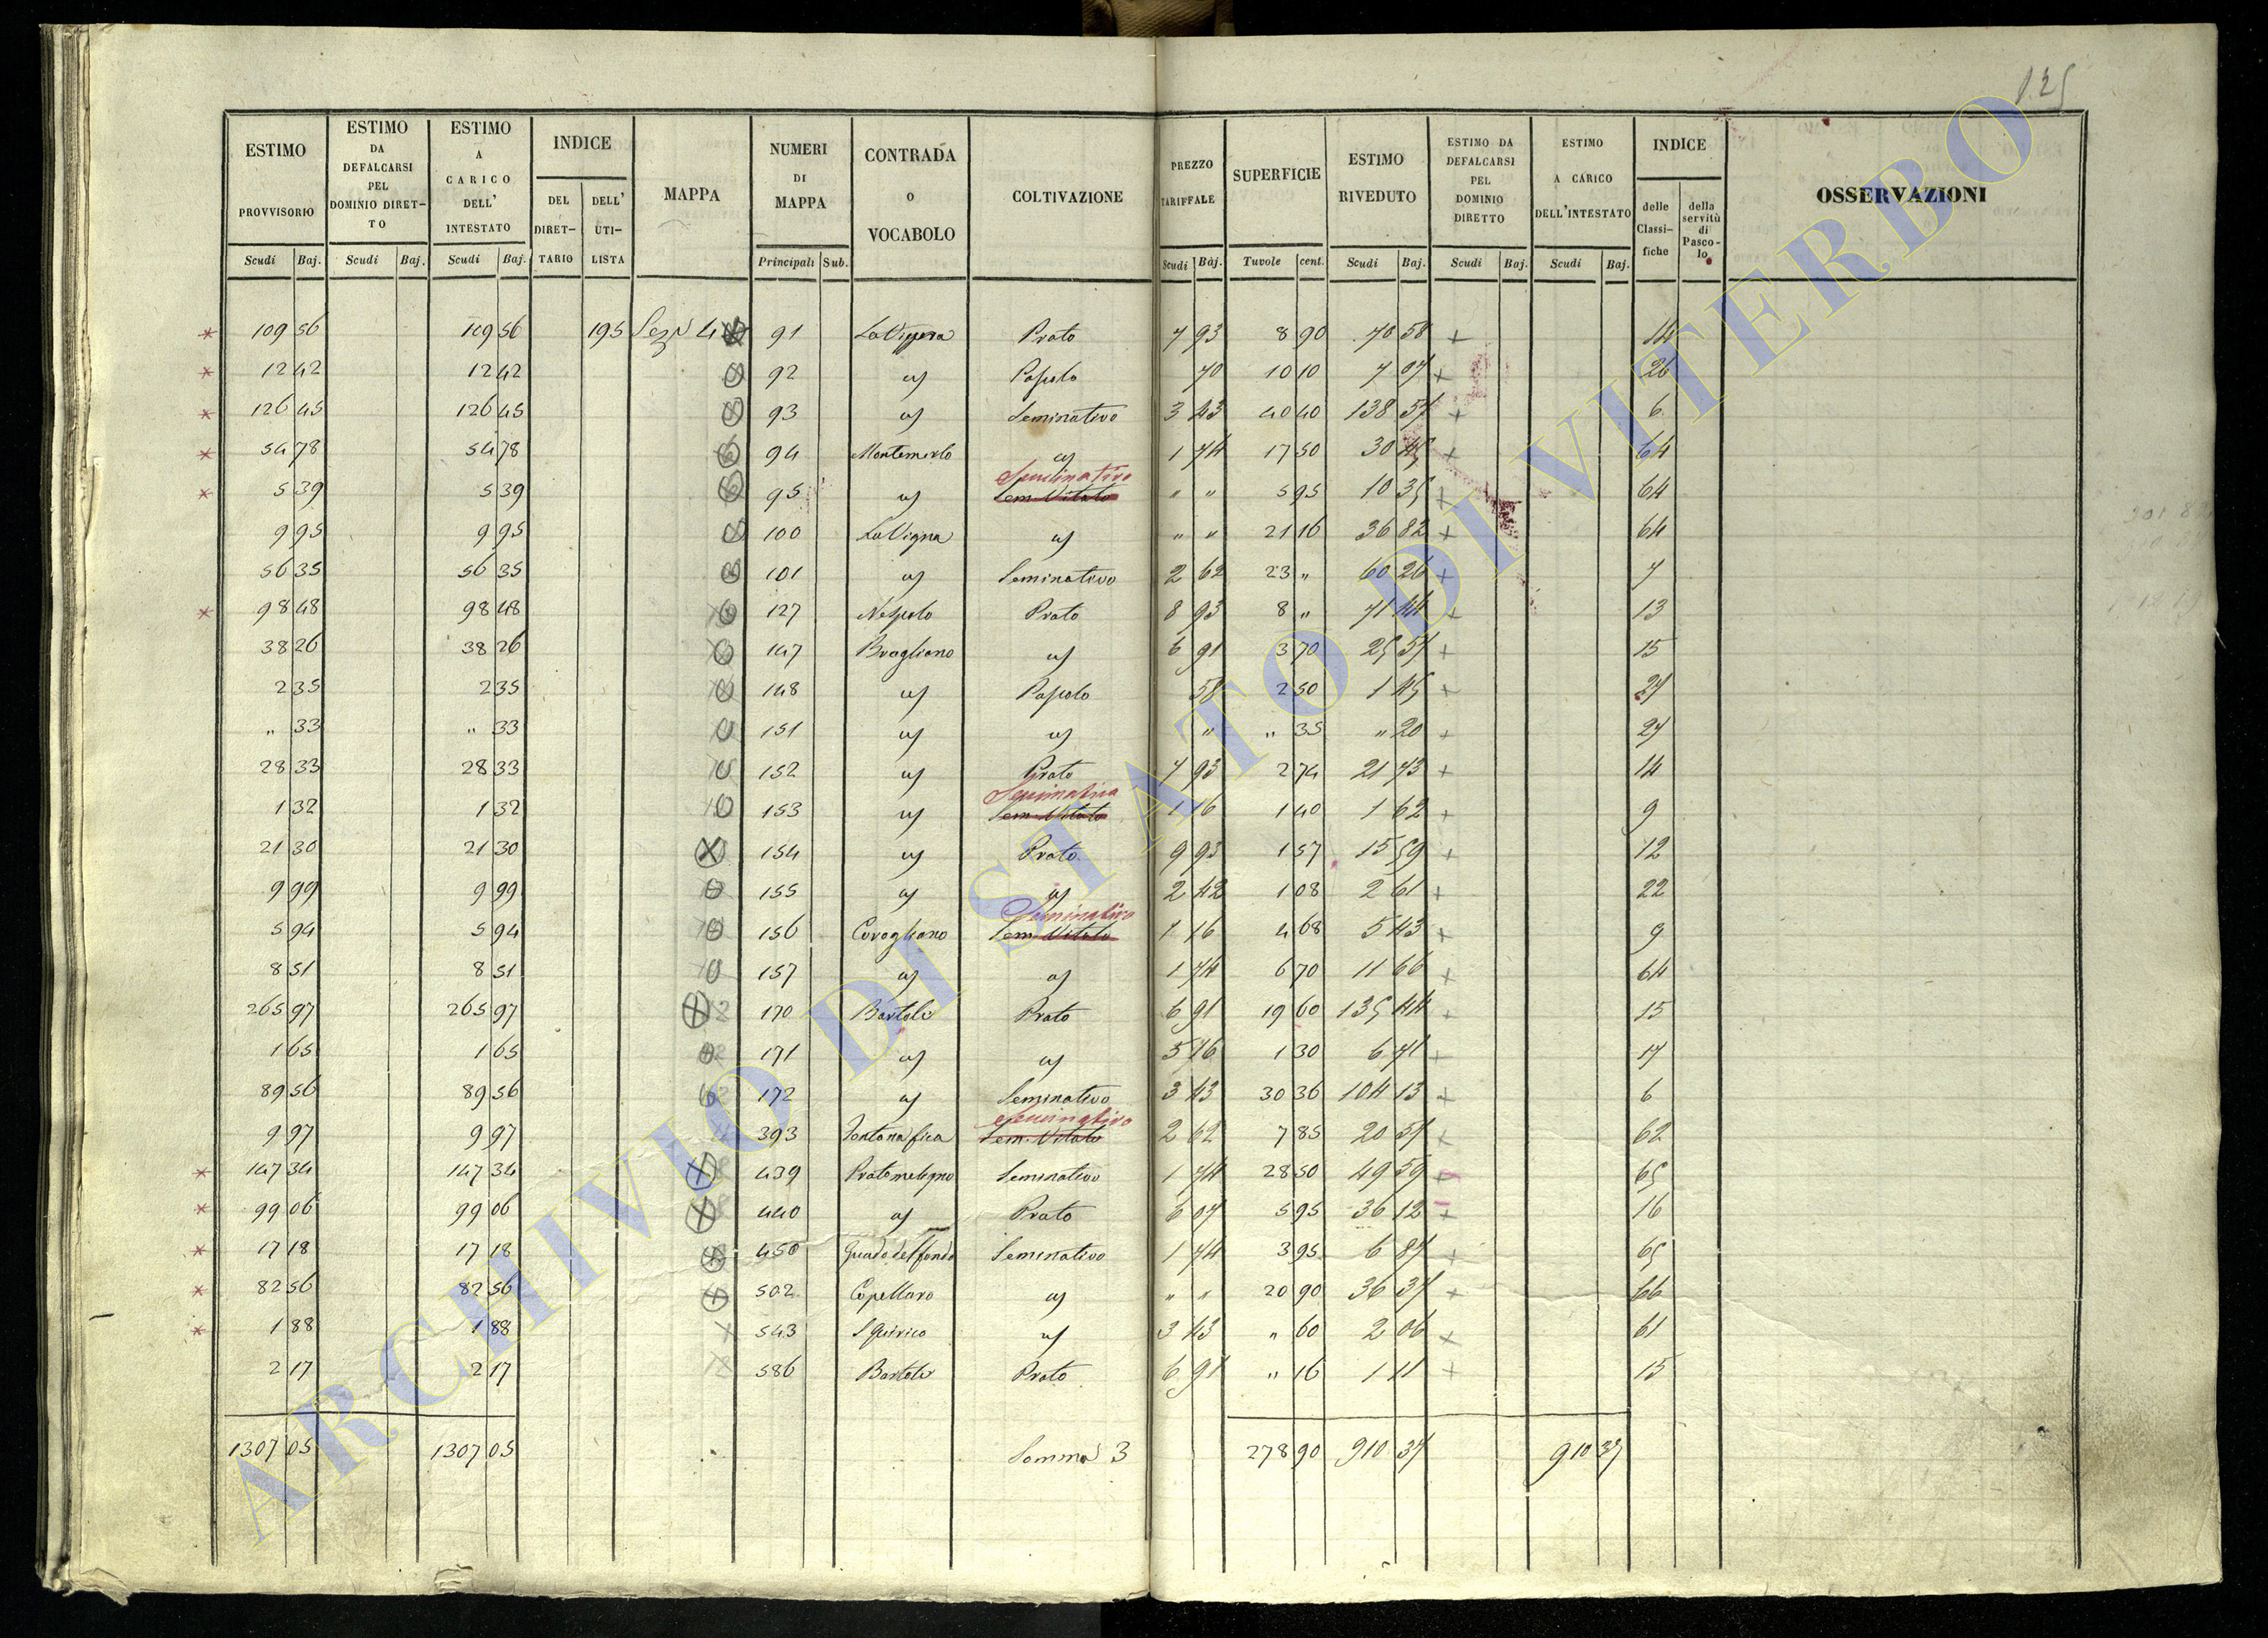 125
ESTIMO PROVVISORIO | ESTIMO DA DEFALCARSI PEL DOMINIO DIRETTO | ESTIMO A CARICO DELL' INTESTATO | INDICE DEL DIRETTARIO | DELL' UTILISTA | MAPPA | NUMERI DI MAPPA | CONTRADA o VOCABOLO | COLTIVAZIONE | PREZZO TARIFFALE | SUPERFICIE | ESTIMO RIVEDUTO | ESTIMO DA DEFALCARSI PEL DOMINIO DIRETTO | ESTIMO A CARICO DELL'INTESTATO | INDICE delle Classifiche | della servitù di Pascolo | OSSERVAZIONI
Scudi Baj. | Scudi Baj. | Scudi Baj. | Principali Sub. | Scudi Baj. | Tavole cent. | Scudi Baj. | Scudi Baj. | Scudi Baj.
* 109 56 109 56 195 Sez. 4 91 Prato 7 93 8 90 70 58 + 14
* 12 42 12 42 92 Pascolo 70 10 10 7 07 + 26
* 126 45 126 45 93 Seminativo 3 43 40 40 138 57 + 6
* 54 78 54 78 94 Montemerlo 1 74 17 50 30 45 + 64
Seminativo
* 5 39 5 39 95 Sem. Vitato " " 5 95 10 35 + 64
9 95 9 95 100 La Vigna " " 21 16 36 82 + 64
56 35 56 35 101 Seminativo 2 62 23 " 60 26 + 7
* 98 48 98 48 127 Nespolo Prato 8 93 8 " 71 44 + 13
38 26 38 26 147 Bragliano 6 91 3 70 25 57 + 15
2 35 2 35 148 Pascolo 58 2 50 1 45 + 27
" 33 " 33 151 " " 35 " 20 + 27
28 33 28 33 152 Prato 7 93 2 74 21 73 + 14
Seminativo
1 32 1 32 153 Sem. Vitato 1 16 1 40 1 62 + 9
21 30 21 30 154 Prato 9 93 1 57 15 59 + 12
9 99 9 99 155 2 42 1 08 2 61 + 22
Seminativo
5 94 5 94 156 Covagliano Sem. Vitato 1 16 4 68 5 43 + 9
8 51 8 51 157 1 74 6 70 11 66 + 64
265 97 265 97 170 Bartoli Prato 6 91 19 60 135 44 + 15
1 65 1 65 171 5 16 1 30 6 71 + 17
89 56 89 56 172 Seminativo 3 43 30 36 104 13 + 6
Seminativo
9 97 9 97 393 Fontana fica Sem. Vitato 2 62 7 85 20 57 + 62
* 147 34 147 34 439 Seminativo 1 74 28 50 49 59 + 65
* 99 06 99 06 440 Prato 6 07 5 95 36 12 + 16
* 17 18 17 18 450 Guado del fondo Seminativo 1 74 3 95 6 87 + 65
* 82 56 82 56 502 Capellaro " " 20 90 36 37 + 66
* 1 88 1 88 543 S Quirico 3 43 " 60 2 06 + 61
2 17 2 17 586 Bartoli Prato 6 91 " 16 1 11 + 15
1307 05 1307 05 Somma 3 278 90 910 37 910 37
ARCHIVIO DI STATO DI VITERBO